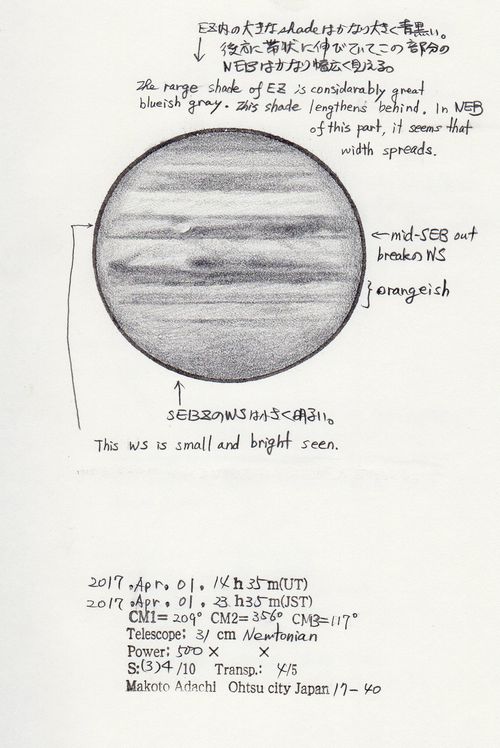 EZ内の大きなshadeはかなり大きく青黒い。
後方に帯状に伸びていてこの部分の
NEBはかなり幅広く見える。
The range shade of EZ is considarably great
blueish gray. This shade lengthens behind. In NEB
of this part, it seems that
width spreads.
←mid-SEB out
breakの WS
orangeish
SEBZのWSは小さく明るい。
This WS is small and bright seen.
2017.Apr.01.14h35m(UT)
2017.Apr.01.23h35m(JST)
CM1=209° CM2=356° CM3=117°
Telescope: 31 cm Newtonian
Power: 500× ×
S:(3)4/10 Transp.: 4/5
Makoto Adachi Ohtsu city Japan 17-40